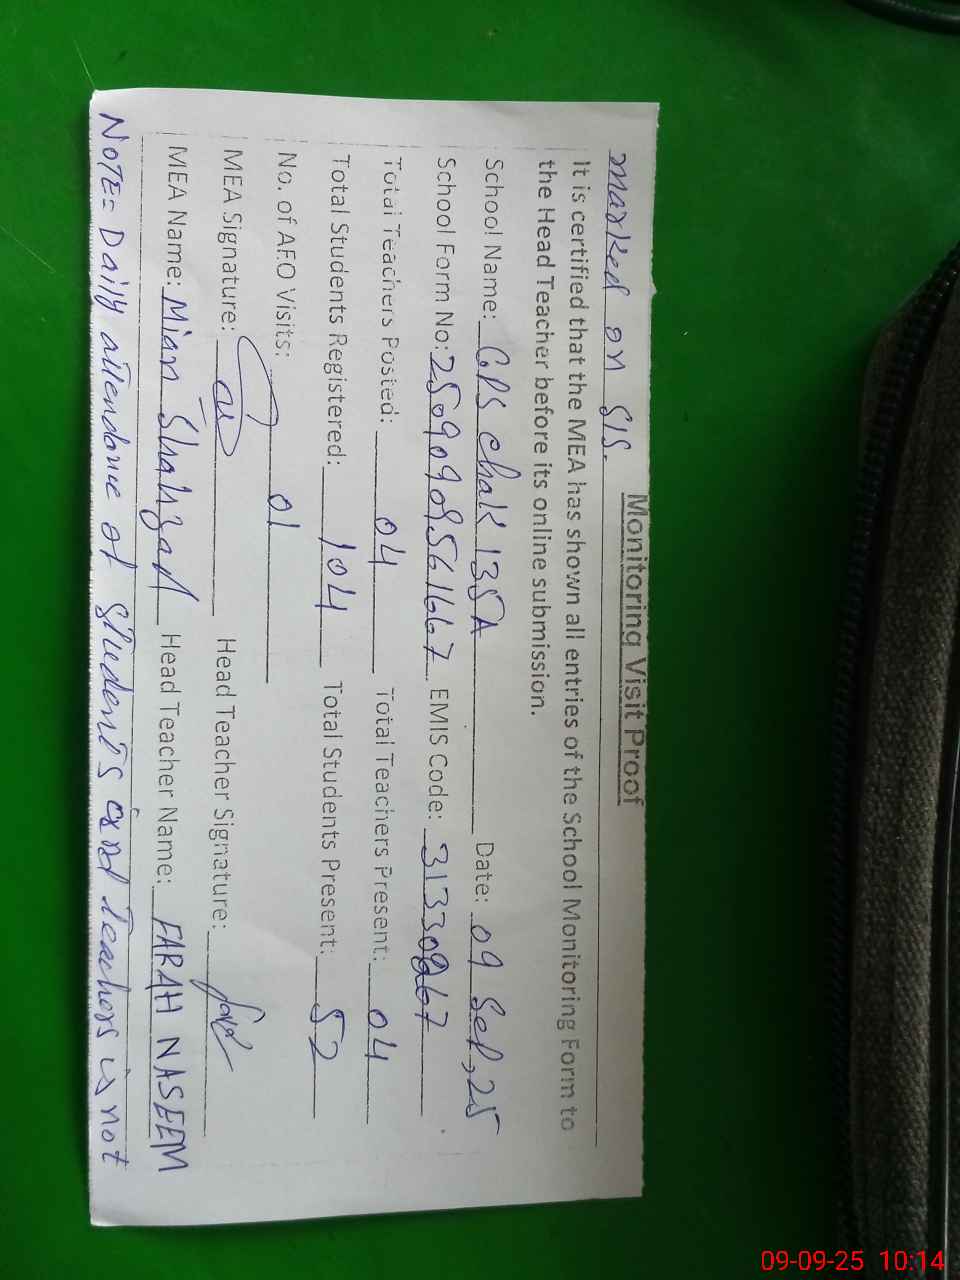 Monitoring Visit Proof
marked on SIS.
It is certified that the MEA has shown all entries of the School Monitoring Form to
the Head Teacher before its online submission.
School Name: GPS chak 135A Date: 09 Sep,25
School Form No: 2509090561667 EMIS Code: 31330267
Total Teachers Posted: 04 Total Teachers Present: 04
Total Students Registered: 104 Total Students Present: 52
No. of AEO Visits: 01
MEA Signature: Head Teacher Signature:
MEA Name: Mian Shahzad Head Teacher Name: FARAH NASEEM
NOTE= Daily attendance of students and teachers is not
09-09-25 10:14